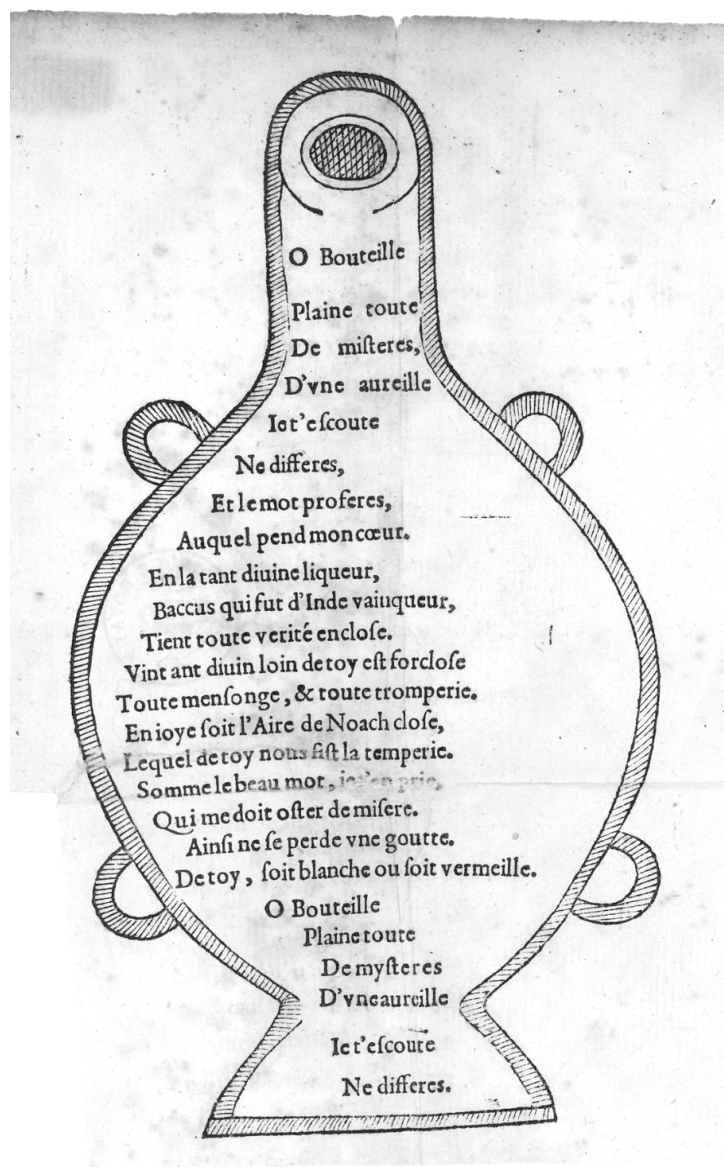 O Bouteille
Plaine toute
De miſteres,
D'vne aureille
Iet'eſcoute
Ne differes,
Et le mot proferes,
Auquel pend mon cœur.
En la tant diuine liqueur,
Baccus qui fut d'Inde vainqueur,
Tient toute verité encloſe.
Vint ant diuin loin de toy eſt forcloſe
Toute menſonge, & toute tromperie.
En ioye ſoit l'Aire de Noach cloſe,
Lequel de toy nous fiſt la temperie.
Somme le beau mot, ie t'en prie,
Qui me doit oſter de miſere.
Ainſi ne ſe perde vne goutte.
De toy, ſoit blanche ou ſoit vermeille.
O Bouteille
Plaine toute
De myſteres
D'vne aureille
Ie t'eſcoute
Ne differes.